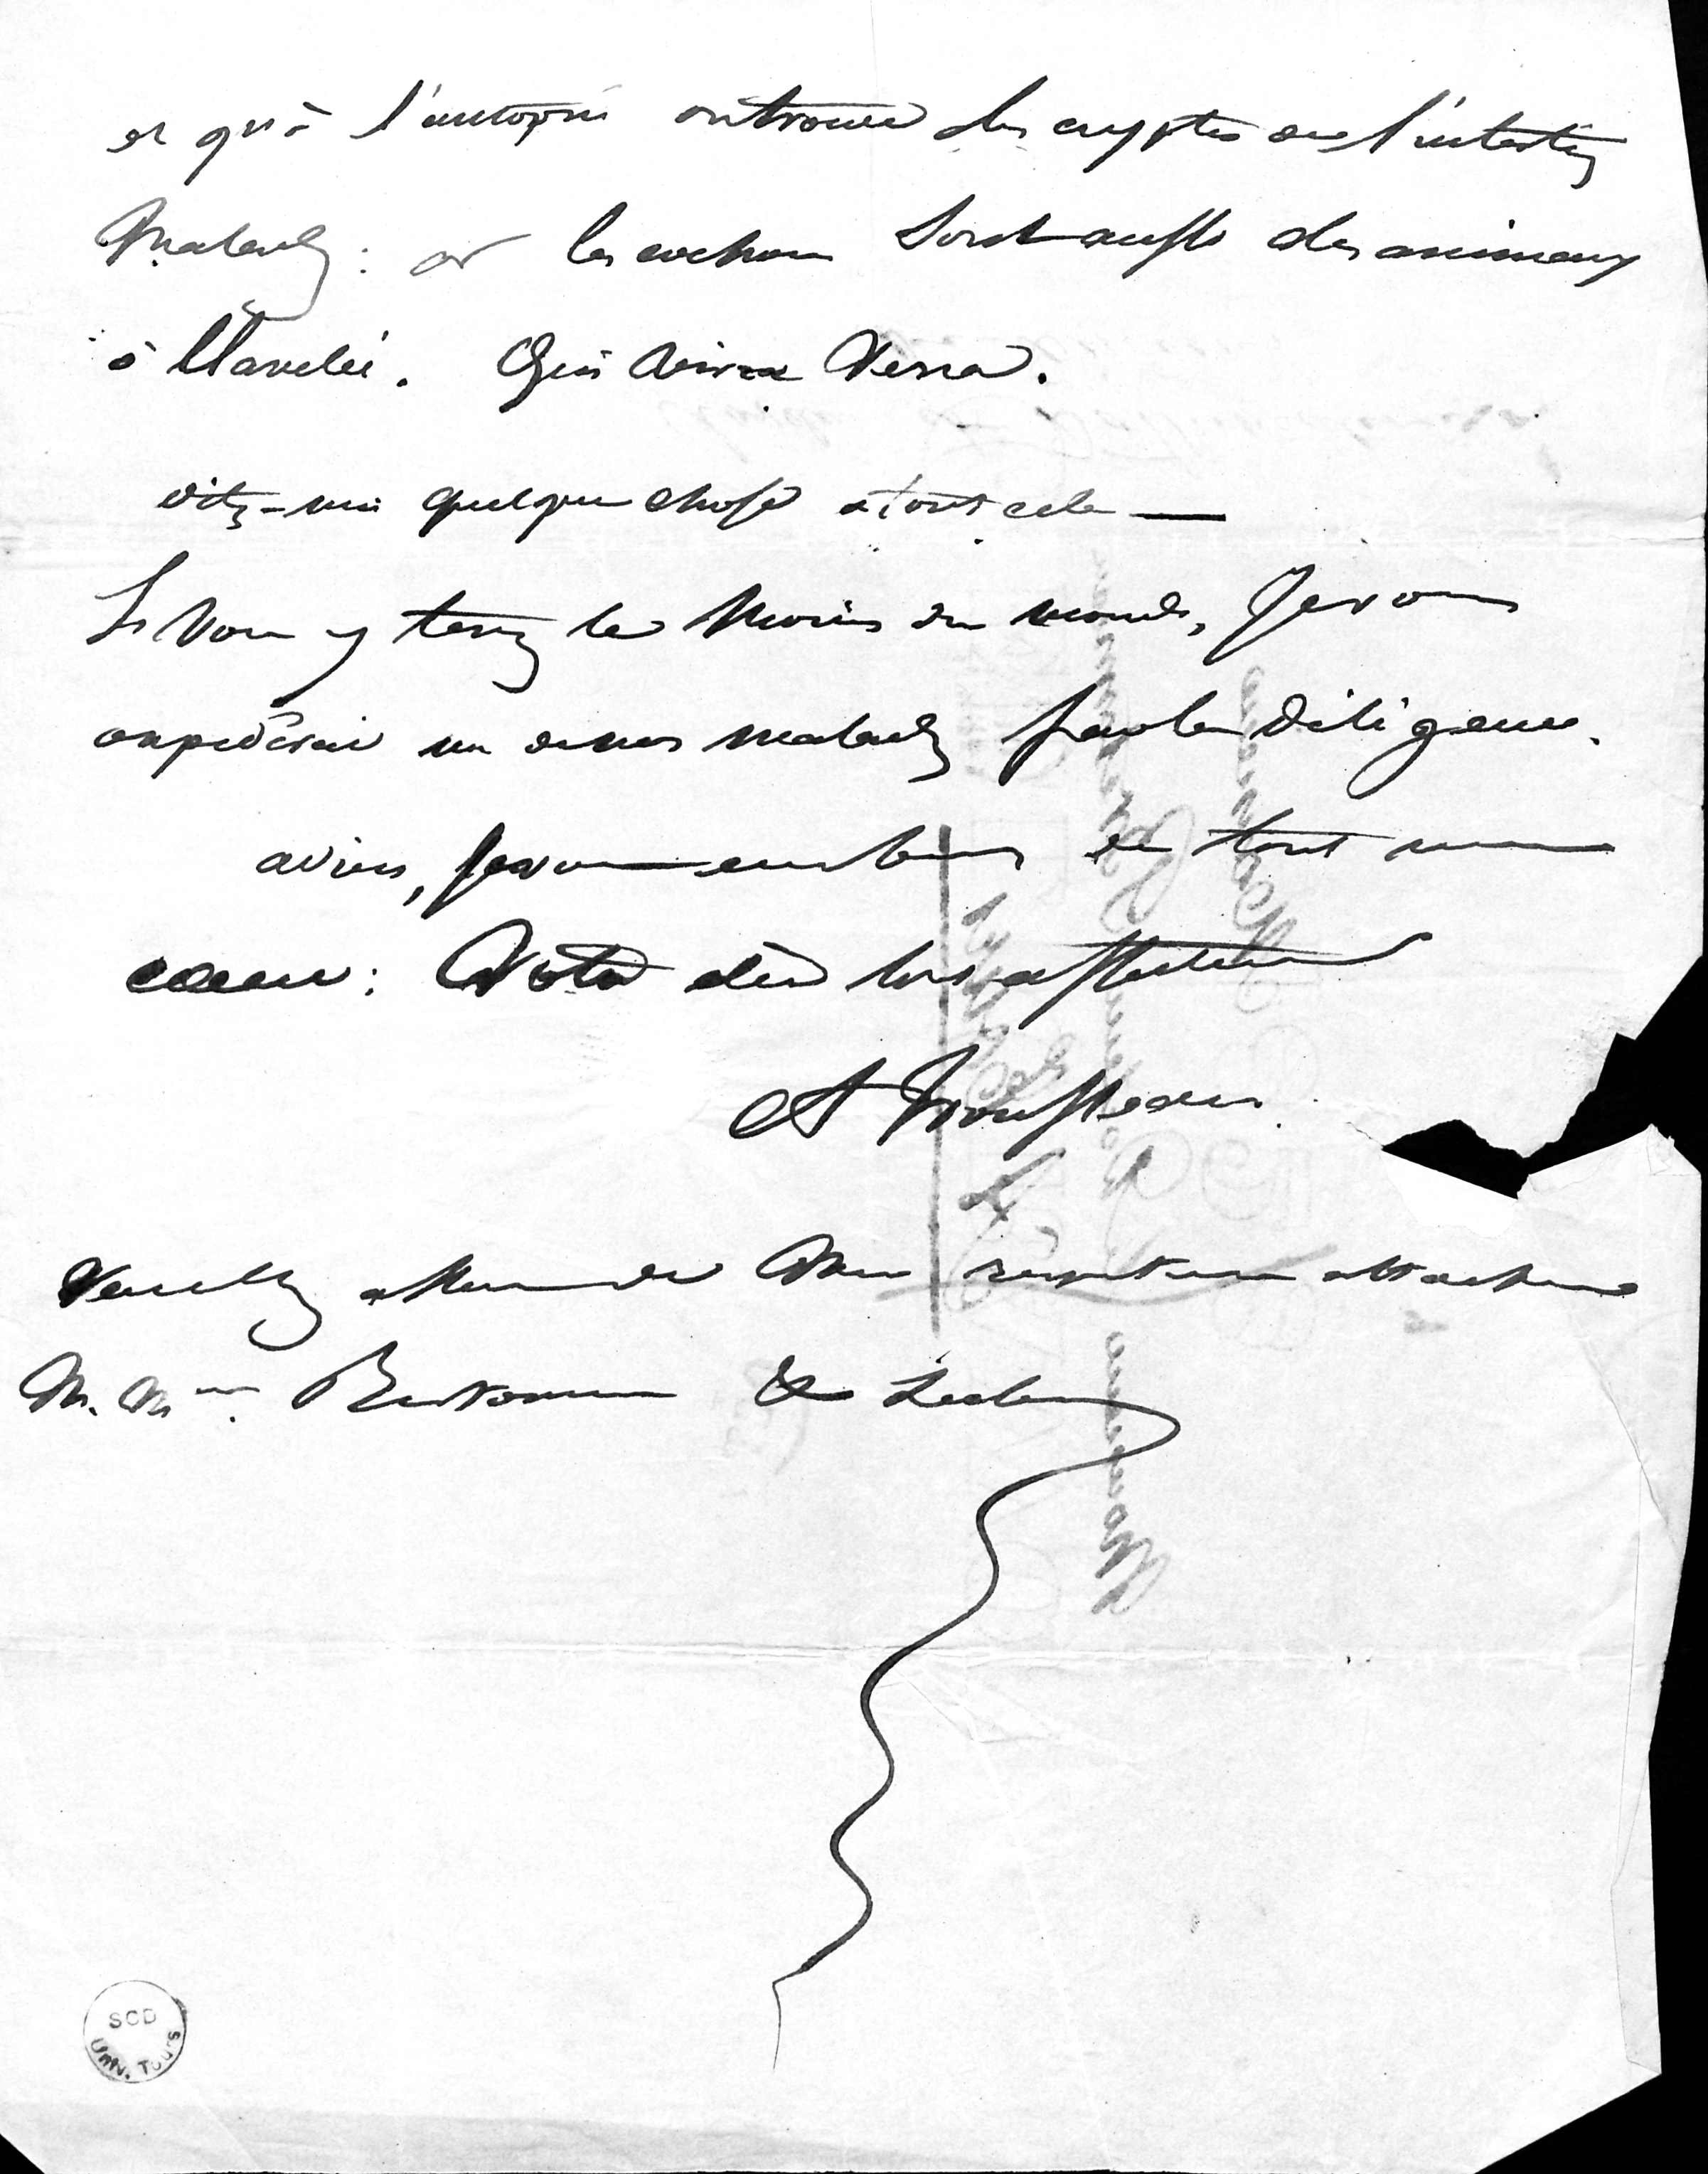 et qu'à l'autopsie on trouve des cryptes de l'intestin
malades : or les cochons sont aussi des animaux
à clavelée. Qui vivra verra.
dites-moi quelque chose à tout cela —
Si vous y tenez le moins du monde, je vous
expédierai un de mes malades par la diligence.
adieu, je vous embrasse de tout mon
coeur : votre très affectionné
A Trousseau.
Veuillez me attachement
M. Mme. Bretonneau & Leclerc
SCD
Univ. Tours